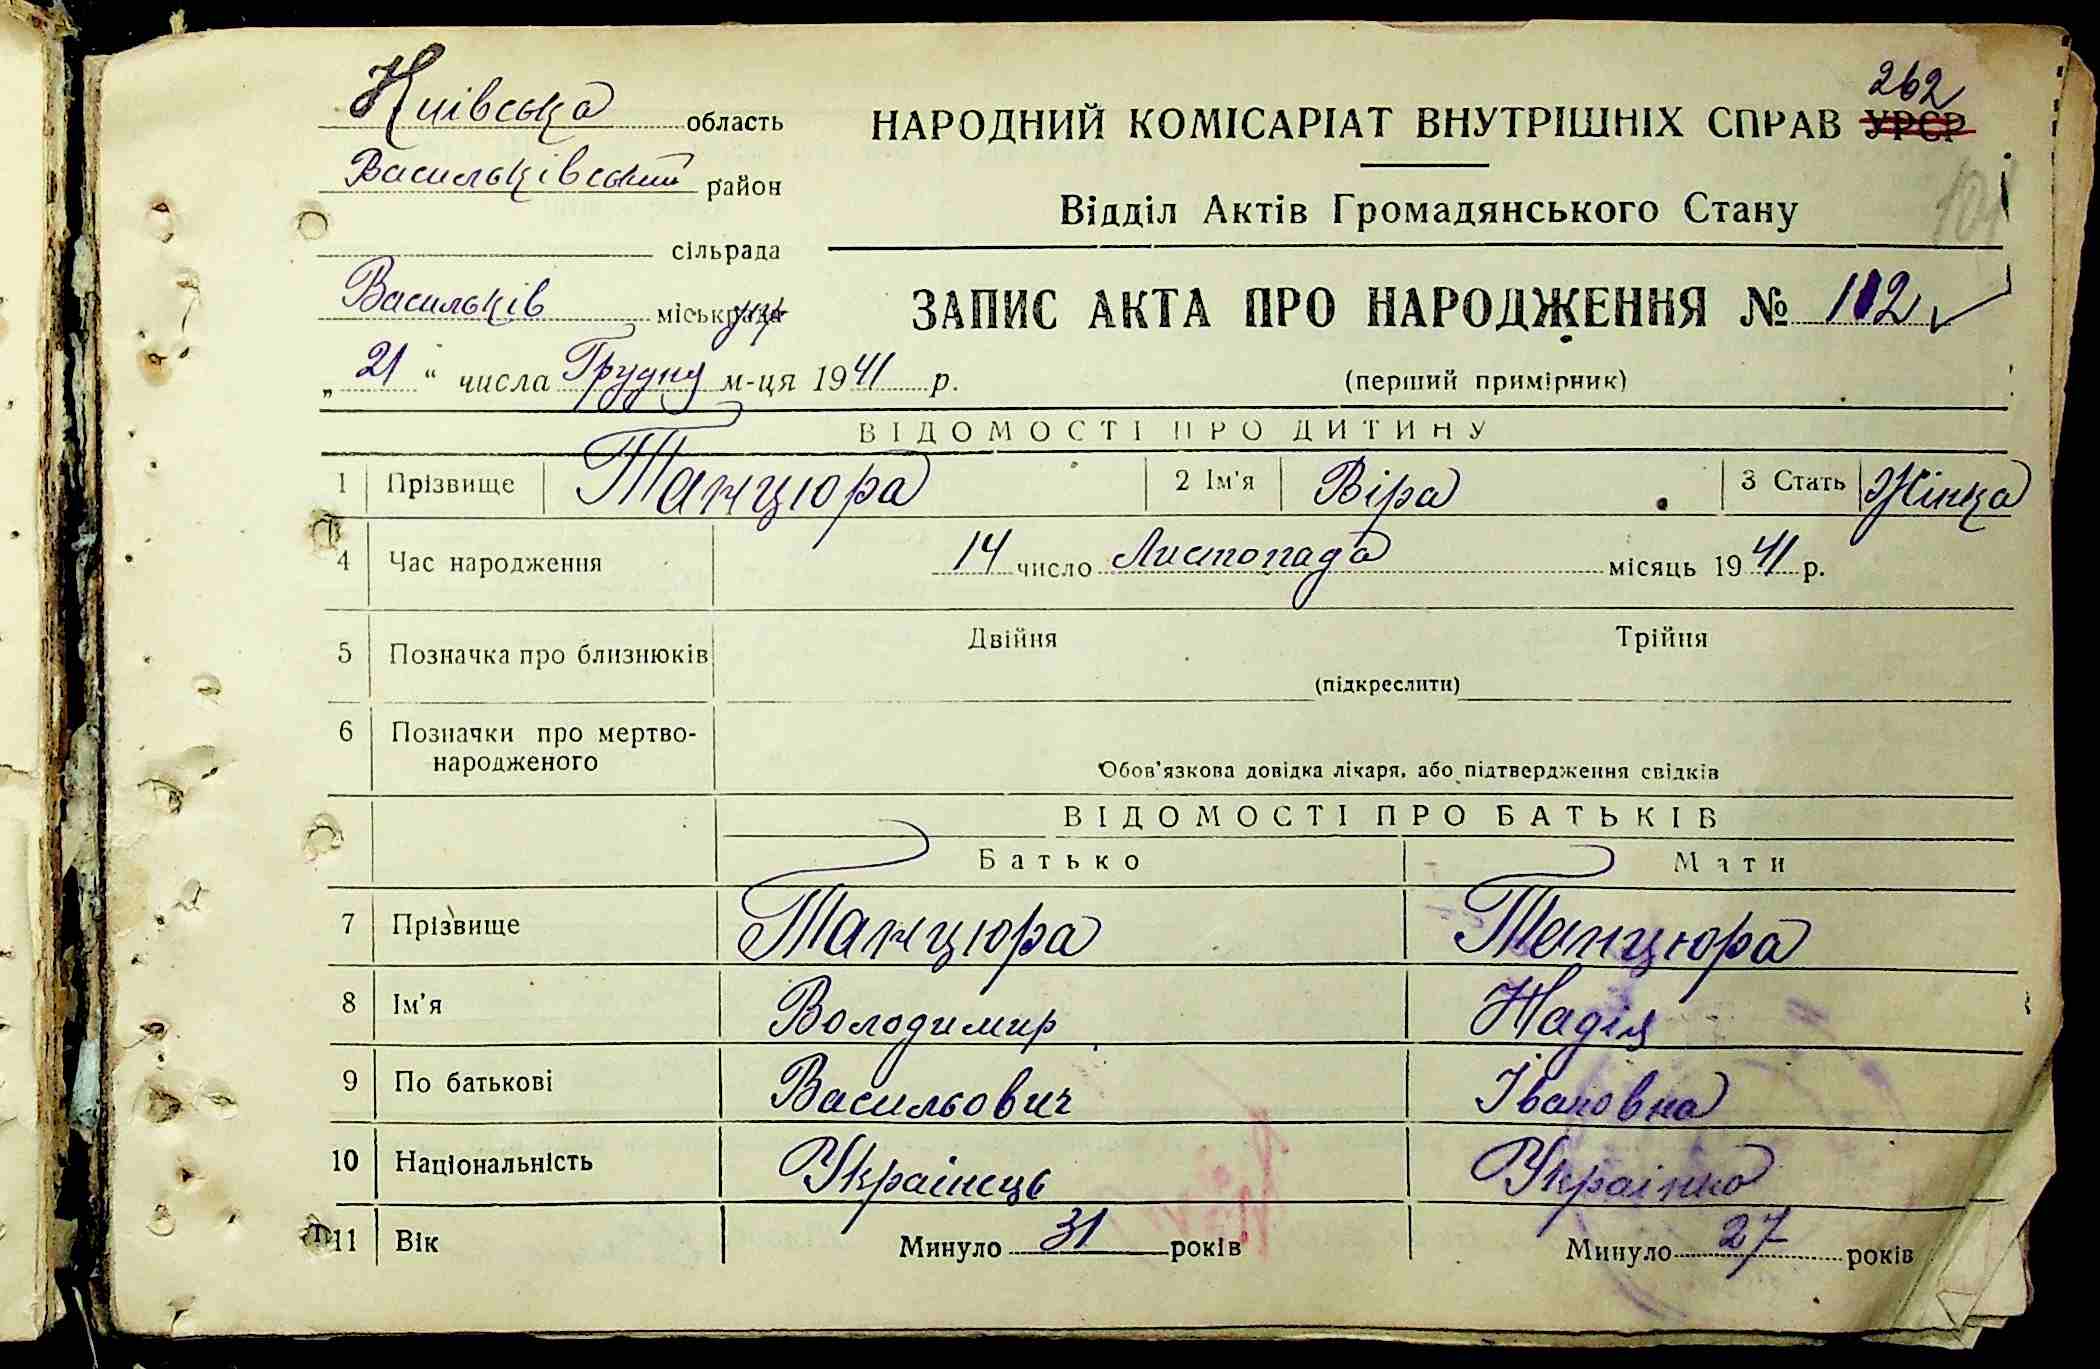 262
Київська область
НАРОДНИЙ КОМІСАРІАТ ВНУТРІШНІХ СПРАВ УРСР
Васильківський район
Відділ Актів Громадянського Стану
сільрада
Васильків міськ
ЗАПИС АКТА ПРО НАРОДЖЕННЯ № 112
„21“ числа Грудня м-ця 1941 р.
(перший примірник)
ВІДОМОСТІ ПРО ДИТИНУ
1 Прізвище Танцюра 2 Ім'я Віра 3 Стать Жінка
4 Час народження 14 число Листопада місяць 1941 р.
5 Позначка про близнюків Двійня Трійня
(підкреслити)
6 Позначки про мертво-
народженого
Обов'язкова довідка лікаря, або підтвердження свідків
ВІДОМОСТІ ПРО БАТЬКІВ
Батько Мати
7 Прізвище Танцюра Танцюра
8 Ім'я Володимир Надія
9 По батькові Васильович Івановна
10 Національність Украінець Украінка
11 Вік Минуло 31 років Минуло 27 років